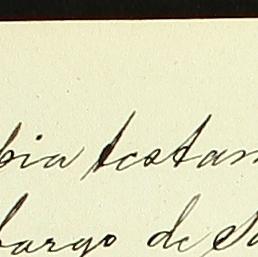 bia testam
bargo de S